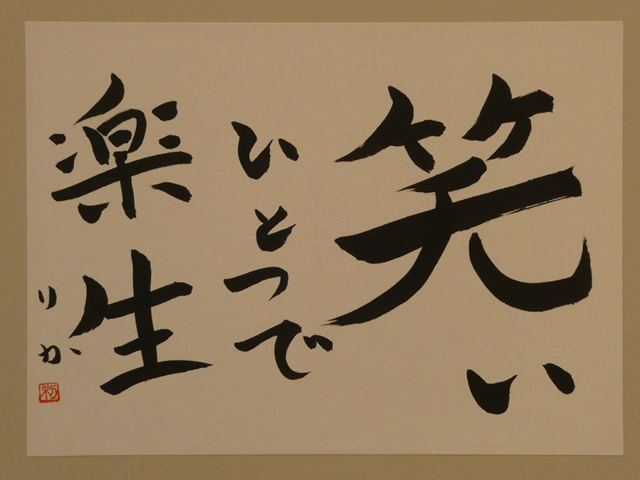 笑い
ひとつで
楽生
りか